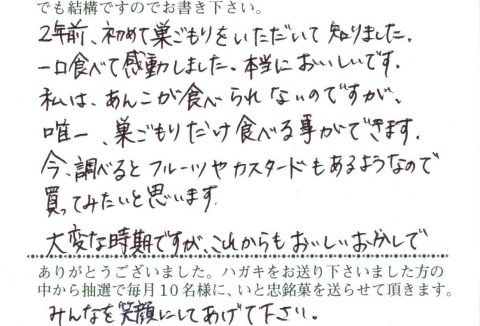 でも結構ですのでお書き下さい。
2年前、初めて巣ごもりをいただいて知りました。
一口食べて感動しました。本当においしいです。
私は、あんこが食べられないのですが、
唯一、巣ごもりだけ食べる事ができます。
今、調べるとフルーツやカスタードもあるようなので
買ってみたいと思います。
大変な時期ですが、これからもおいしいお菓子で
ありがとうございました。ハガキをお送り下さいました方の
中から抽選で毎月10名様に、いと忠銘菓を送らせて頂きます。
みんなを笑顔にしてあげて下さい。